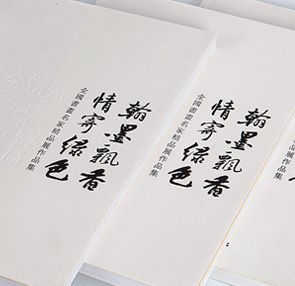 翰墨飄香
情寄绿色
全國書畫名家精品展作品集
翰墨飄香
情寄绿色
全國書畫名家精品展作品集
品展作品集